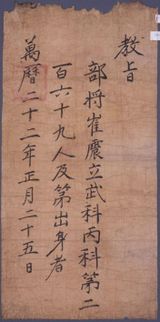 教旨
部將崔震立武科丙科第二
百六十九人及第出身者
萬曆二十二年正月二十五日